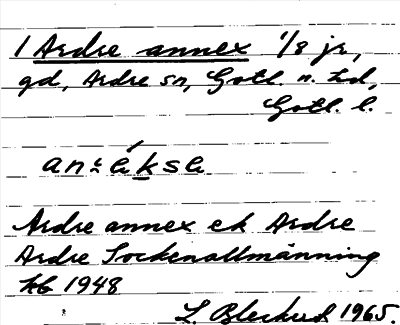 1 Ardre annex 1/8 jr,
gd, Ardre sn, Gotl. n. hd,
Gotl. l.
Ardre annex ek Ardre
Ardre Sockenallmänning
kb 1948
L. 1965.